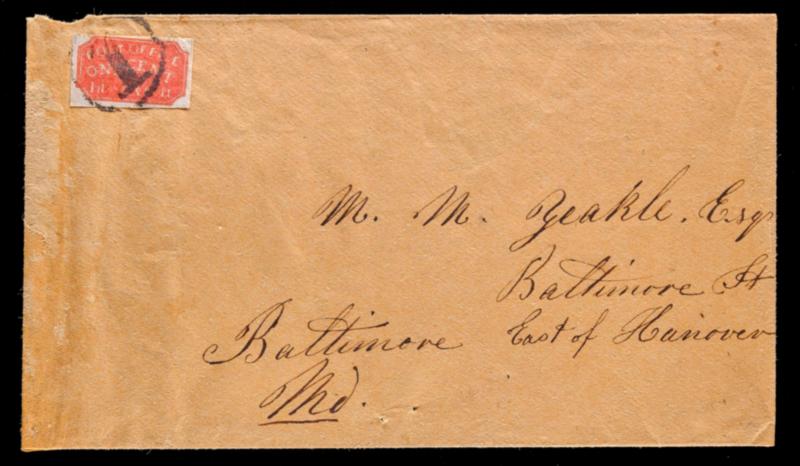 POST OFFICE
ONE CENT
M. M. Yeakle. Esqr
Baltimore St
East of Hanover
Baltimore
Md.